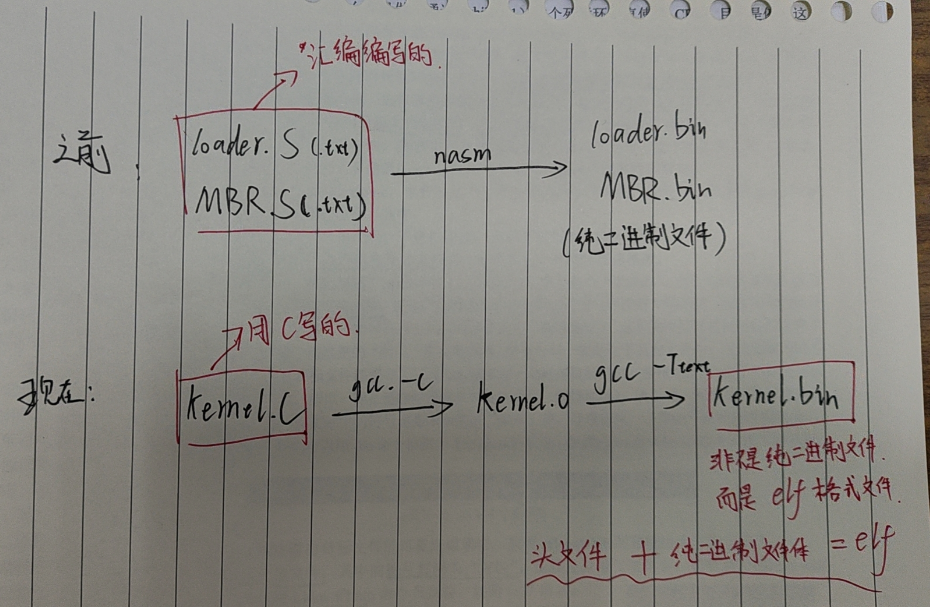 汇编编写的.
之前:
loader.S(.txt)
MBR.S(.txt)
nasm
loader.bin
MBR.bin
(纯二进制文件)
用C写的.
现在:
kernel.C
gcc -c
kernel.o
gcc -Ttext
kernel.bin
非是纯二进制文件.
而是 elf 格式文件.
头文件 + 纯二进制文件体 = elf